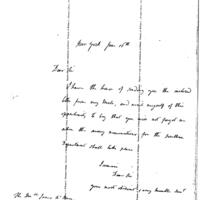 New York Jan 16th
Dear Sir
I have the honor of sending you the enclosed
letter from my Uncle, and avail myself of this
opportunity to beg that you will not forget me
when the many nominations for the
Department shall take place
I remain
Dear Sir
your most obedient & very humble Servt
The Honble James